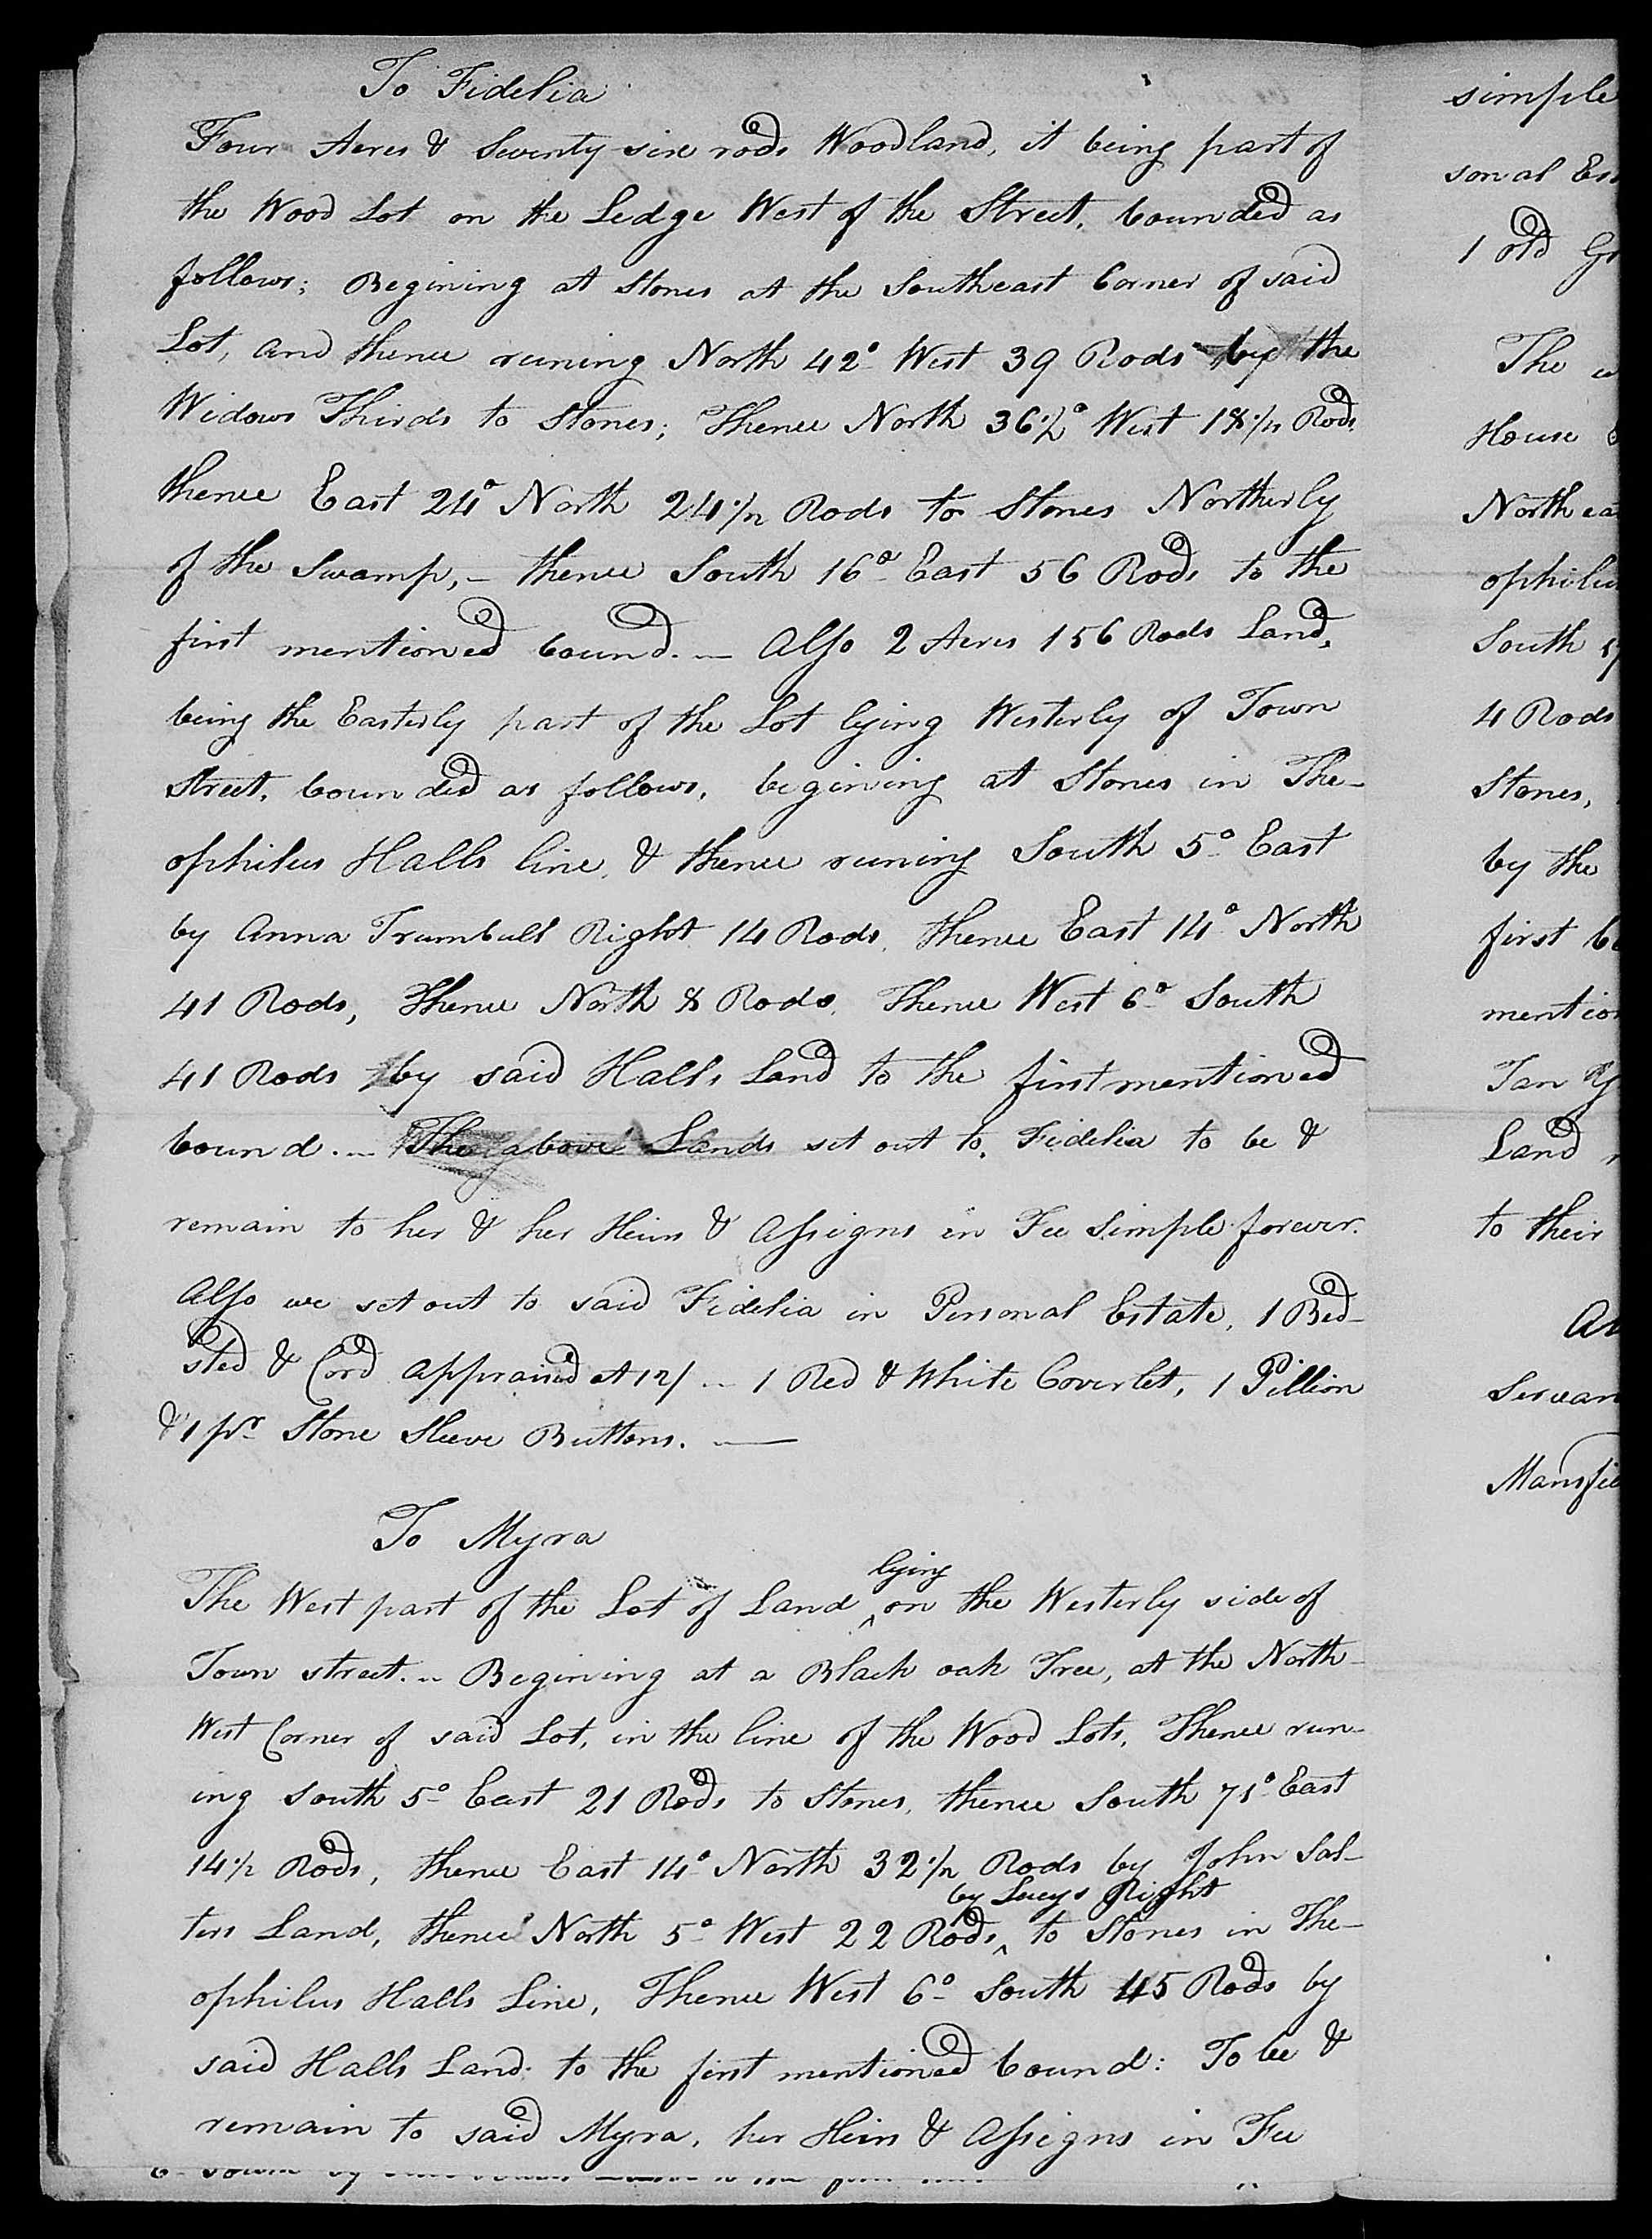 To Fidelia
Four Acres & Seventy six rods Woodland, it being part of
the Wood Lot on the Ledge West of the Street, bounded as
follows; Begining at Stones at the Southeast Corner of said
Lot, and thence runing North 42° West 39 Rods by the
Widows Thirds to Stones; Thence North 36½° West 18½ Rods
thence East 24° North 24½ Rods to Stones Northerly
of the Swamp, – thence South 16° East 56 Rods to the
first mentioned bound. – Also 2 Acres 156 Rods Land,
being the Easterly part of the Lot lying Westerly of Town
Street, bounded as follows, begining at Stones in The-
ophilus Halls line, & thence runing South 5° East
by Anna Trumbull Right 14 Rods, thence East 14° North
41 Rods, Thence North 8 Rods, Thence West 6° South
41 Rods by said Halls Land to the first mentioned
bound. – The above Lands set out to, Fidelia to be &
remain to her & her Heirs & Assigns in Fee Simple forever.
Also we set out to said Fidelia in Personal Estate, 1 Bed-
sted & Cord appraised at 12/ – 1 Red & White Coverlet, 1 Pillion
& 1 pr Stone Sleeve Buttons. –
To Myra
The West part of the Lot of Land lying on the Westerly side of
Town street. – Begining at a Black oak Tree, at the North-
West Corner of said Lot, in the line of the Wood Lots, Thence run-
ing South 5° East 21 Rods to Stones, thence South 71° East
14½ Rods, thence East 14° North 32½ Rods by John Sal-
ters Land, thence North 5° West 22 Rods by Lucys Right to Stones in The-
ophilus Halls Line, Thence West 6° South 45 Rods by
said Halls Land to the first mentioned bound: To be &
remain to said Myra, her Heirs & Assigns in Fee
simple
sonal Es
1 old Gr
The w
House
North ea
ophilus
South
4 Rods
Stones,
by the
first bo
mention
Tan Y
Land
to their
Servan
Mansfie